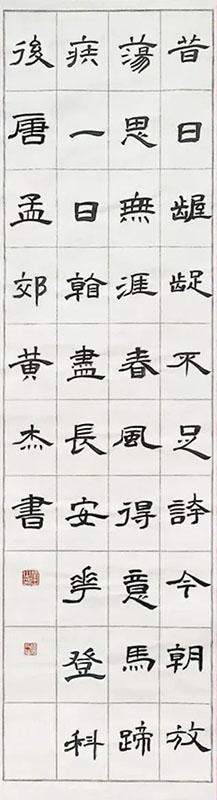 昔日齷齪不足誇今朝放
蕩思無涯春風得意馬蹄
疾一日看盡長安華登科
後唐孟郊黃杰書